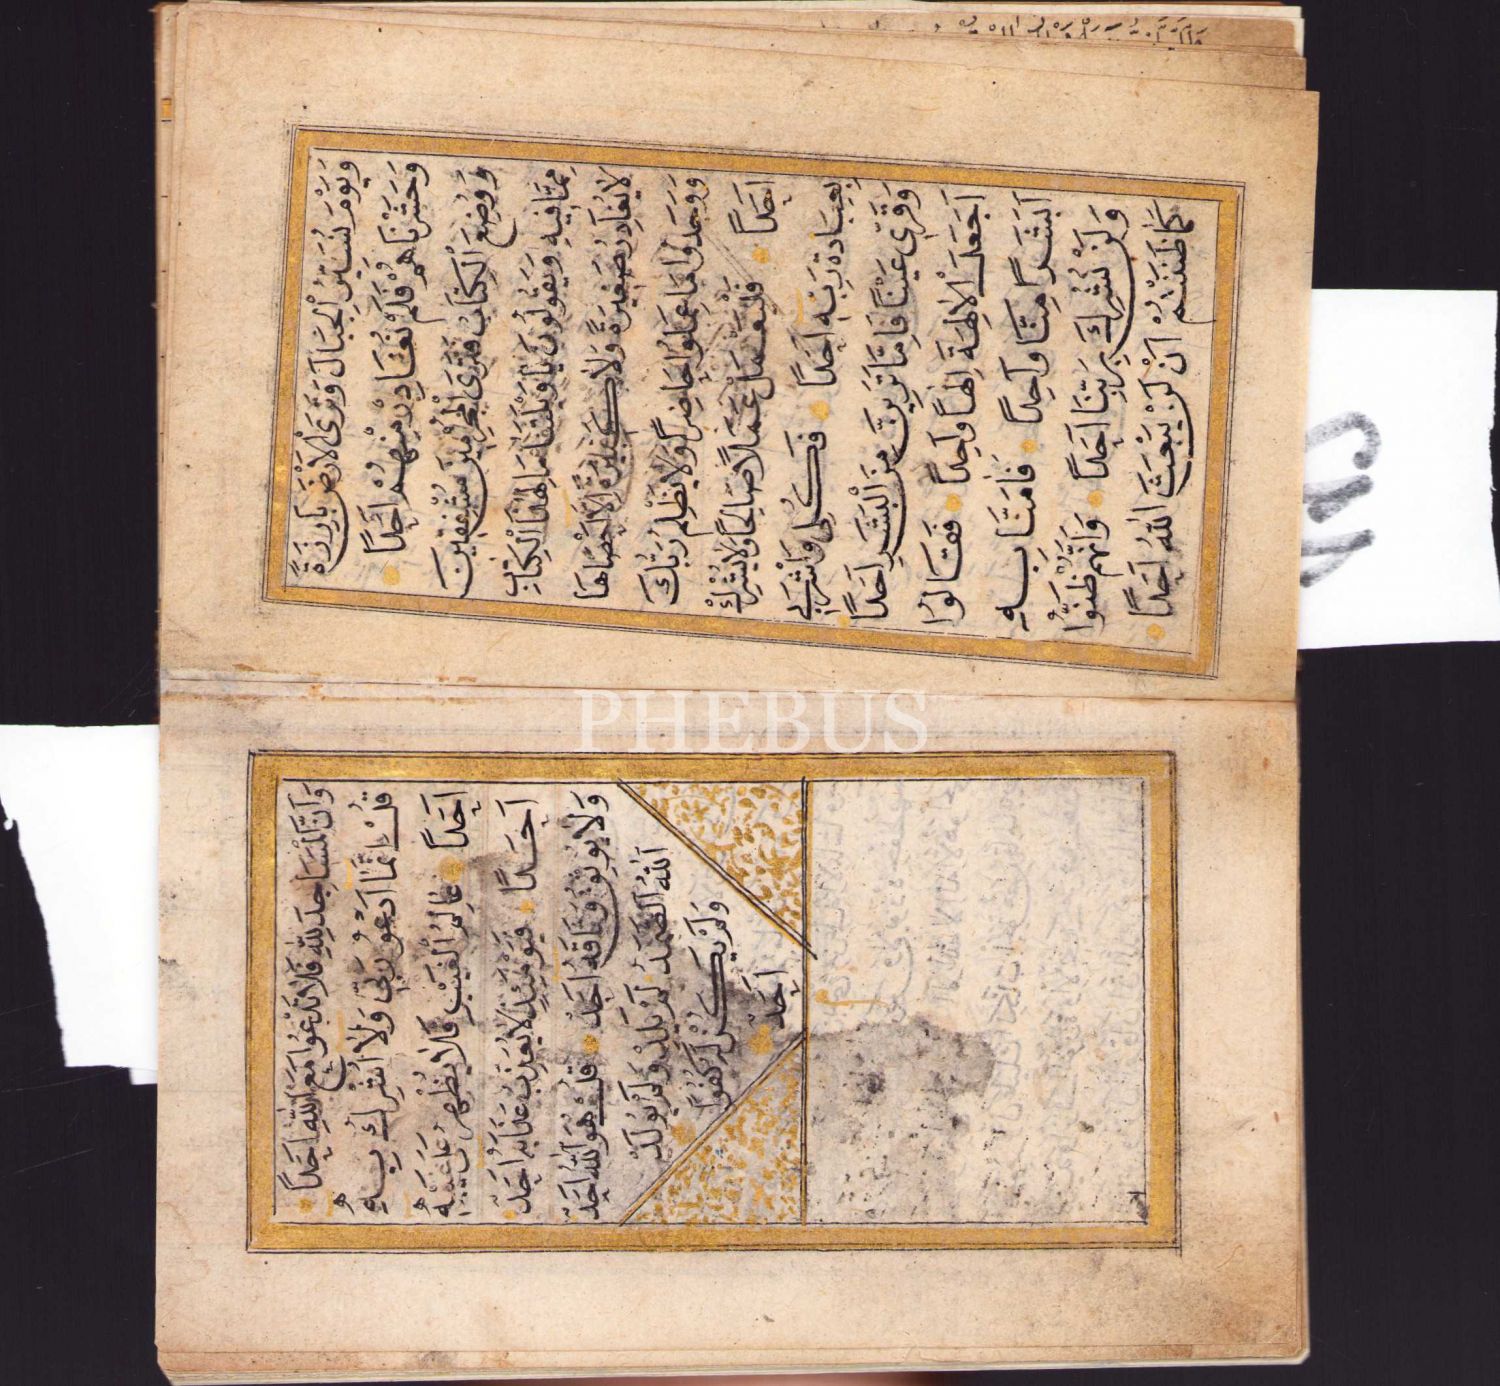 وَيَوْمَ نُسَيِّرُ الْجِبَالَ وَتَرَى الْاَرْضَ بَارِزَةً
وَحَشَرْنَاهُمْ فَلَمْ نُغَادِرْ مِنْهُمْ اَحَدًا
وَوُضِعَ الْكِتَابُ فَتَرَى الْمُجْرِمِينَ مُشْفِقِينَ
مِمَّا فِيهِ وَيَقُولُونَ يَا وَيْلَتَنَا مَا لِهٰذَا الْكِتَابِ
لَا يُغَادِرُ صَغِيرَةً وَلَا كَبِيرَةً اِلَّا اَحْصَاهَا
وَوَجَدُوا مَا عَمِلُوا حَاضِرًا وَلَا يَظْلِمُ رَبُّكَ
اَحَدًا فَلْيَعْمَلْ عَمَلًا صَالِحًا وَلَا يُشْرِكْ
بِعِبَادَةِ رَبِّهِ اَحَدًا فَكُلِي وَاشْرَبِي
وَقَرِّي عَيْنًا فَاِمَّا تَرَيِنَّ مِنَ الْبَشَرِ اَحَدًا
اَجَعَلَ الْاٰلِهَةَ اِلٰهًا وَاحِدًا فَقَالُوا
اَبَشَرًا مِنَّا وَاحِدًا فَاٰمَنَّا بِهِ
وَلَنْ نُشْرِكَ بِرَبِّنَا اَحَدًا وَاَنَّهُمْ ظَنُّوا
كَمَا ظَنَنْتُمْ اَنْ لَنْ يَبْعَثَ اللّٰهُ اَحَدًا
وَاَنَّ الْمَسَاجِدَ لِلّٰهِ فَلَا تَدْعُوا مَعَ اللّٰهِ اَحَدًا
قُلْ اِنَّمَا اَدْعُو رَبِّي وَلَا اُشْرِكُ بِهِ
اَحَدًا عَالِمُ الْغَيْبِ فَلَا يُظْهِرُ عَلٰى غَيْبِهِ
اَحَدًا فَيَوْمَئِذٍ لَا يُعَذِّبُ عَذَابَهُ اَحَدٌ
وَلَا يُوثِقُ وَثَاقَهُ اَحَدٌ قُلْ هُوَ اللّٰهُ اَحَدٌ
اَللّٰهُ الصَّمَدُ لَمْ يَلِدْ وَلَمْ يُولَدْ
وَلَمْ يَكُنْ لَهُ كُفُوًا
اَحَدٌ
PHEBUS